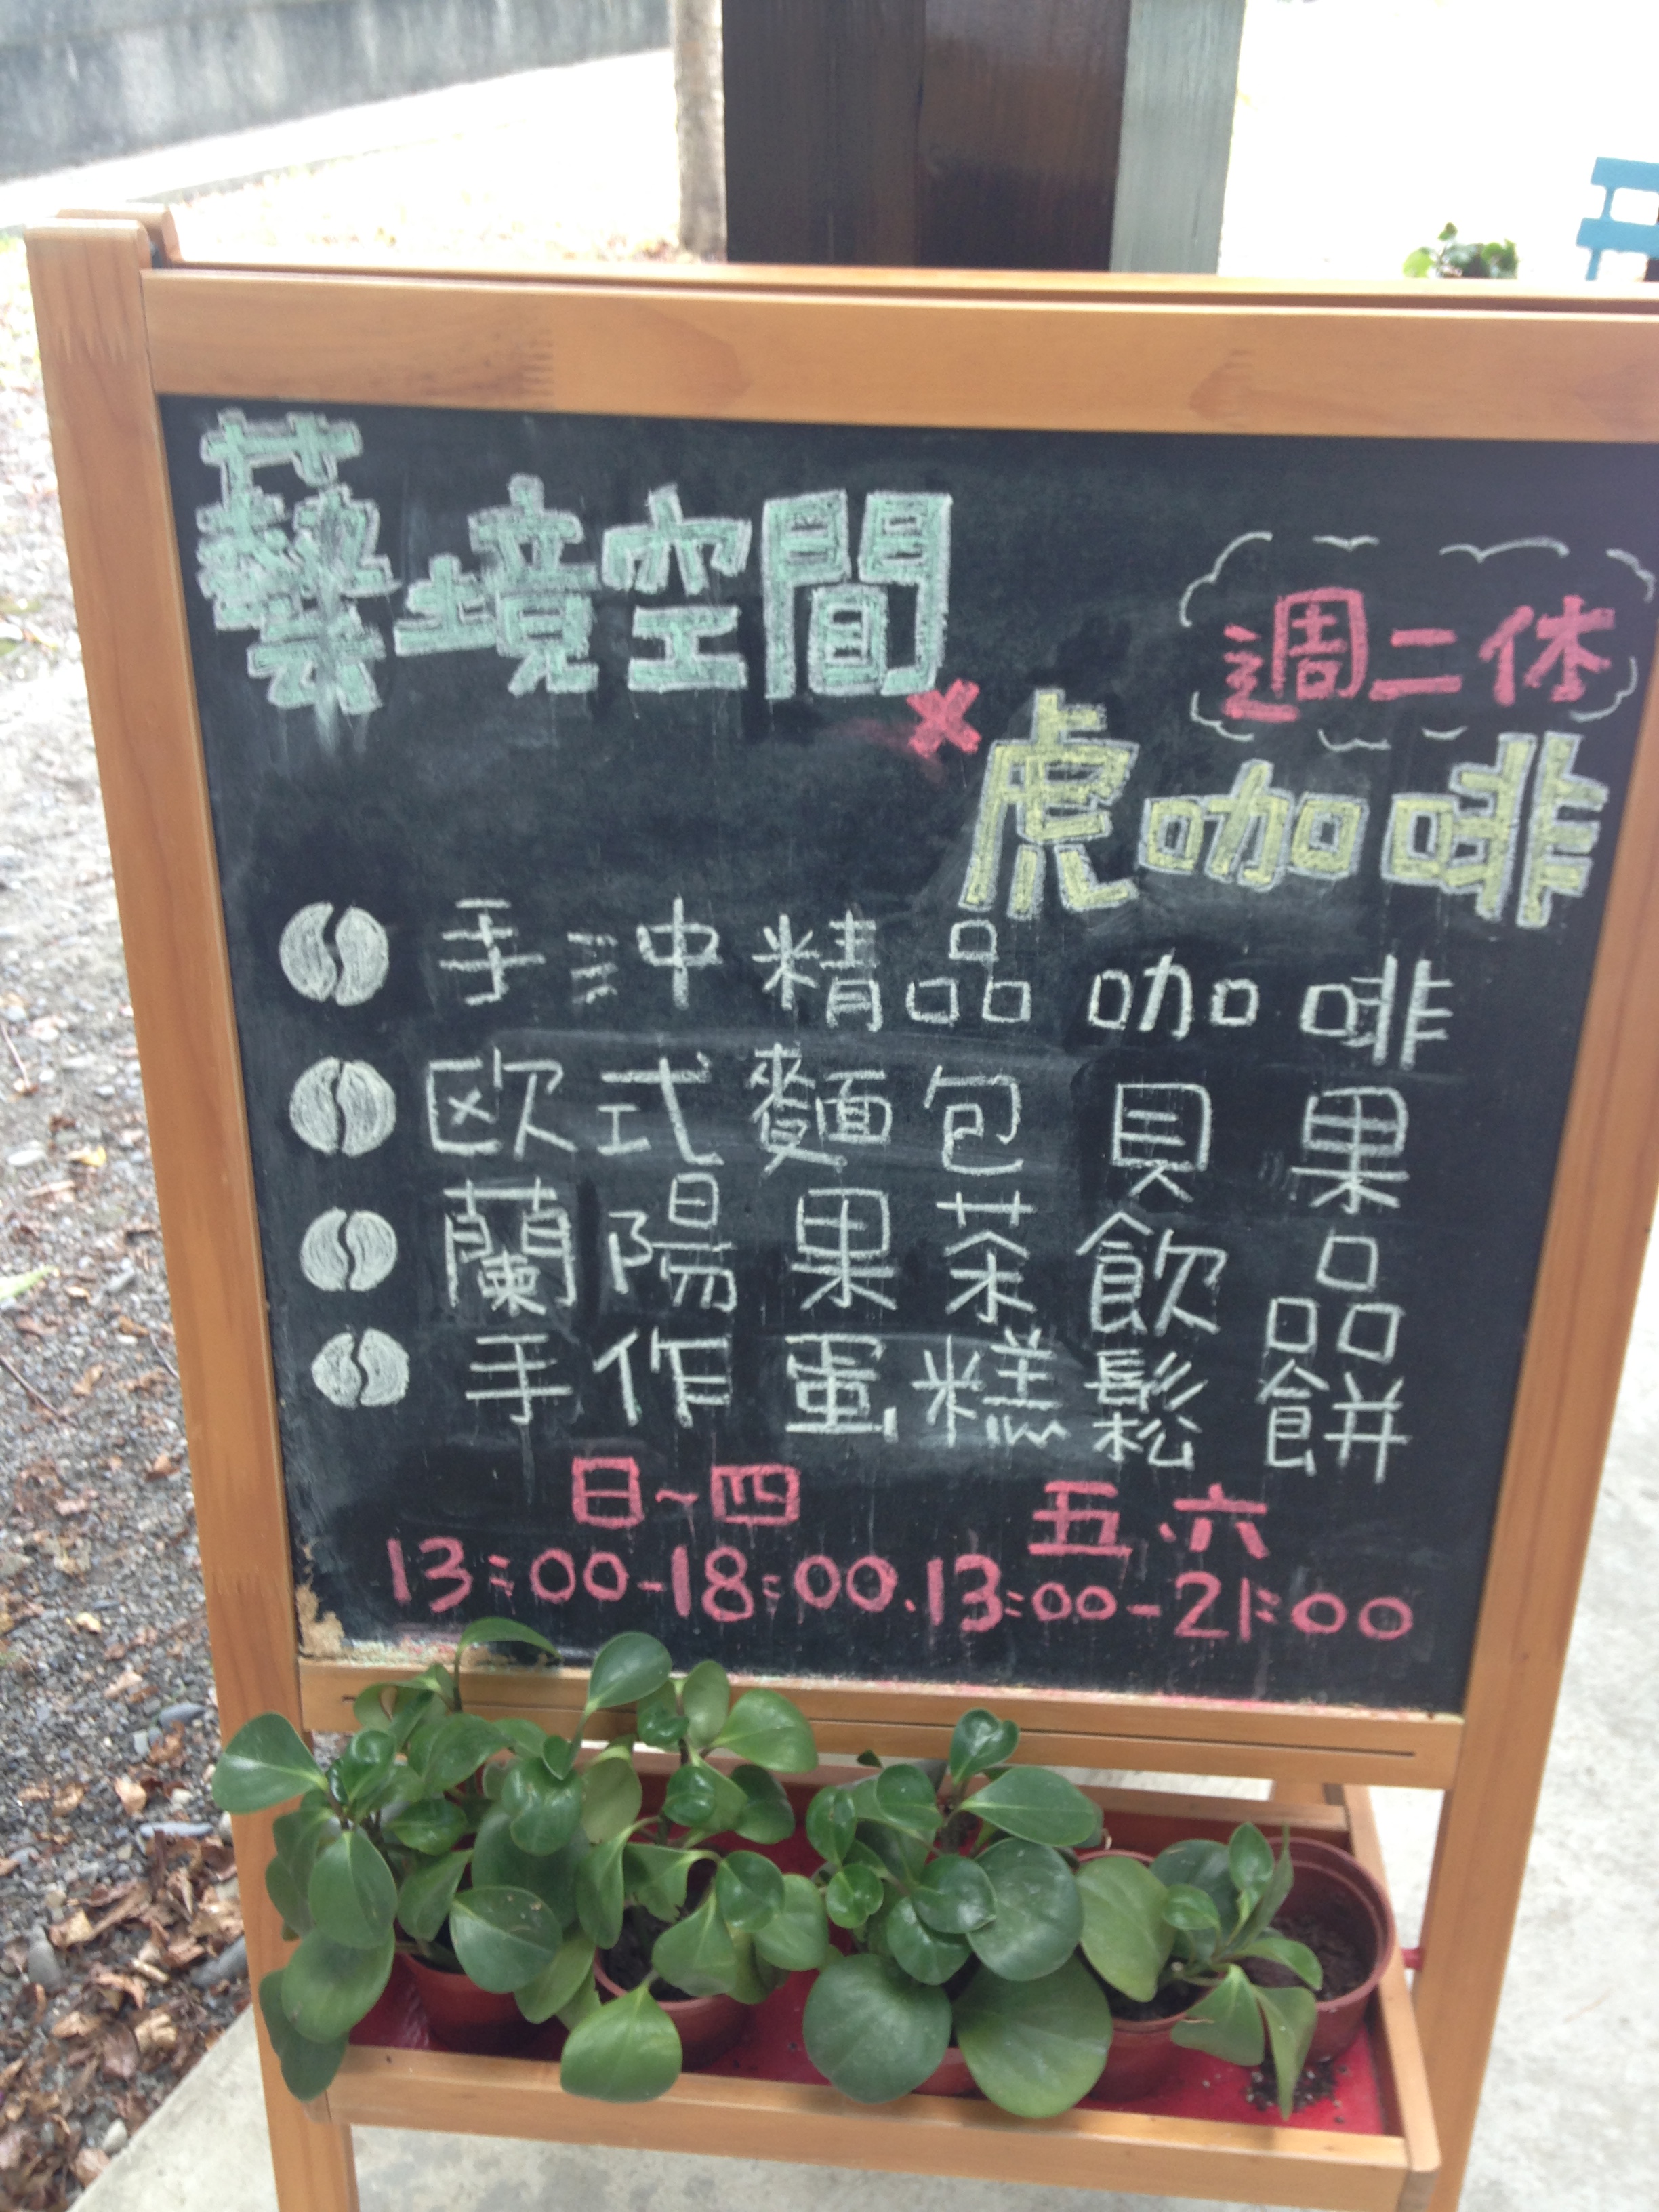 藝境空間
週二休
×
虎咖啡
手沖精品咖啡
欧式麵包貝果
蘭陽果茶飲品
手作蛋糕鬆餅
日~四 五、六
13:00-18:00.13:00-21:00